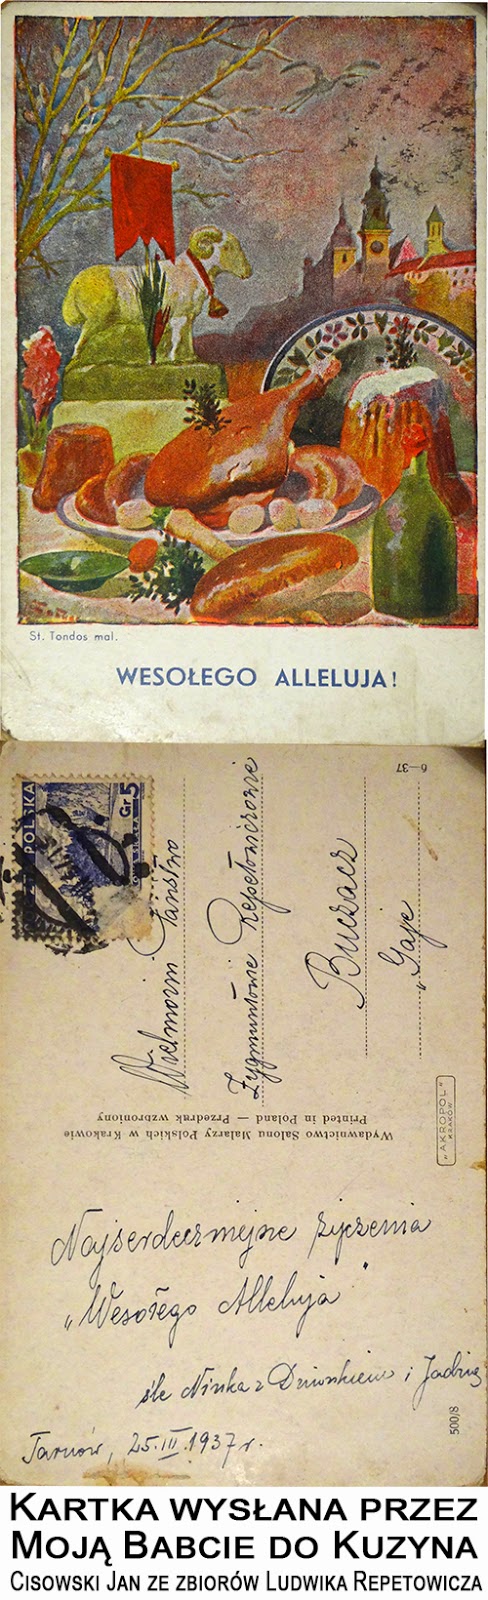 St. Tondos mal.
WESOŁEGO ALLELUJA!
POLSKA
Gr 5
6-37
Wielmożni Państwo
Zygmuntowie Repetowiczowie
Buczacz
"Gaje
Wydawnictwo Salonu Malarzy Polskich w Krakowie
Printed in Poland — Przedruk wzbroniony
"AKROPOL"
KRAKÓW
Najserdeczniejsze życzenia
„Wesołego Alleluja"
śle Ninka z Dziunkiem i Jadzią
Tarnów, 25.III.1937 r.
500/8
KARTKA WYSŁANA PRZEZ
MOJĄ BABCIE DO KUZYNA
CISOWSKI JAN ZE ZBIORÓW LUDWIKA REPETOWICZA